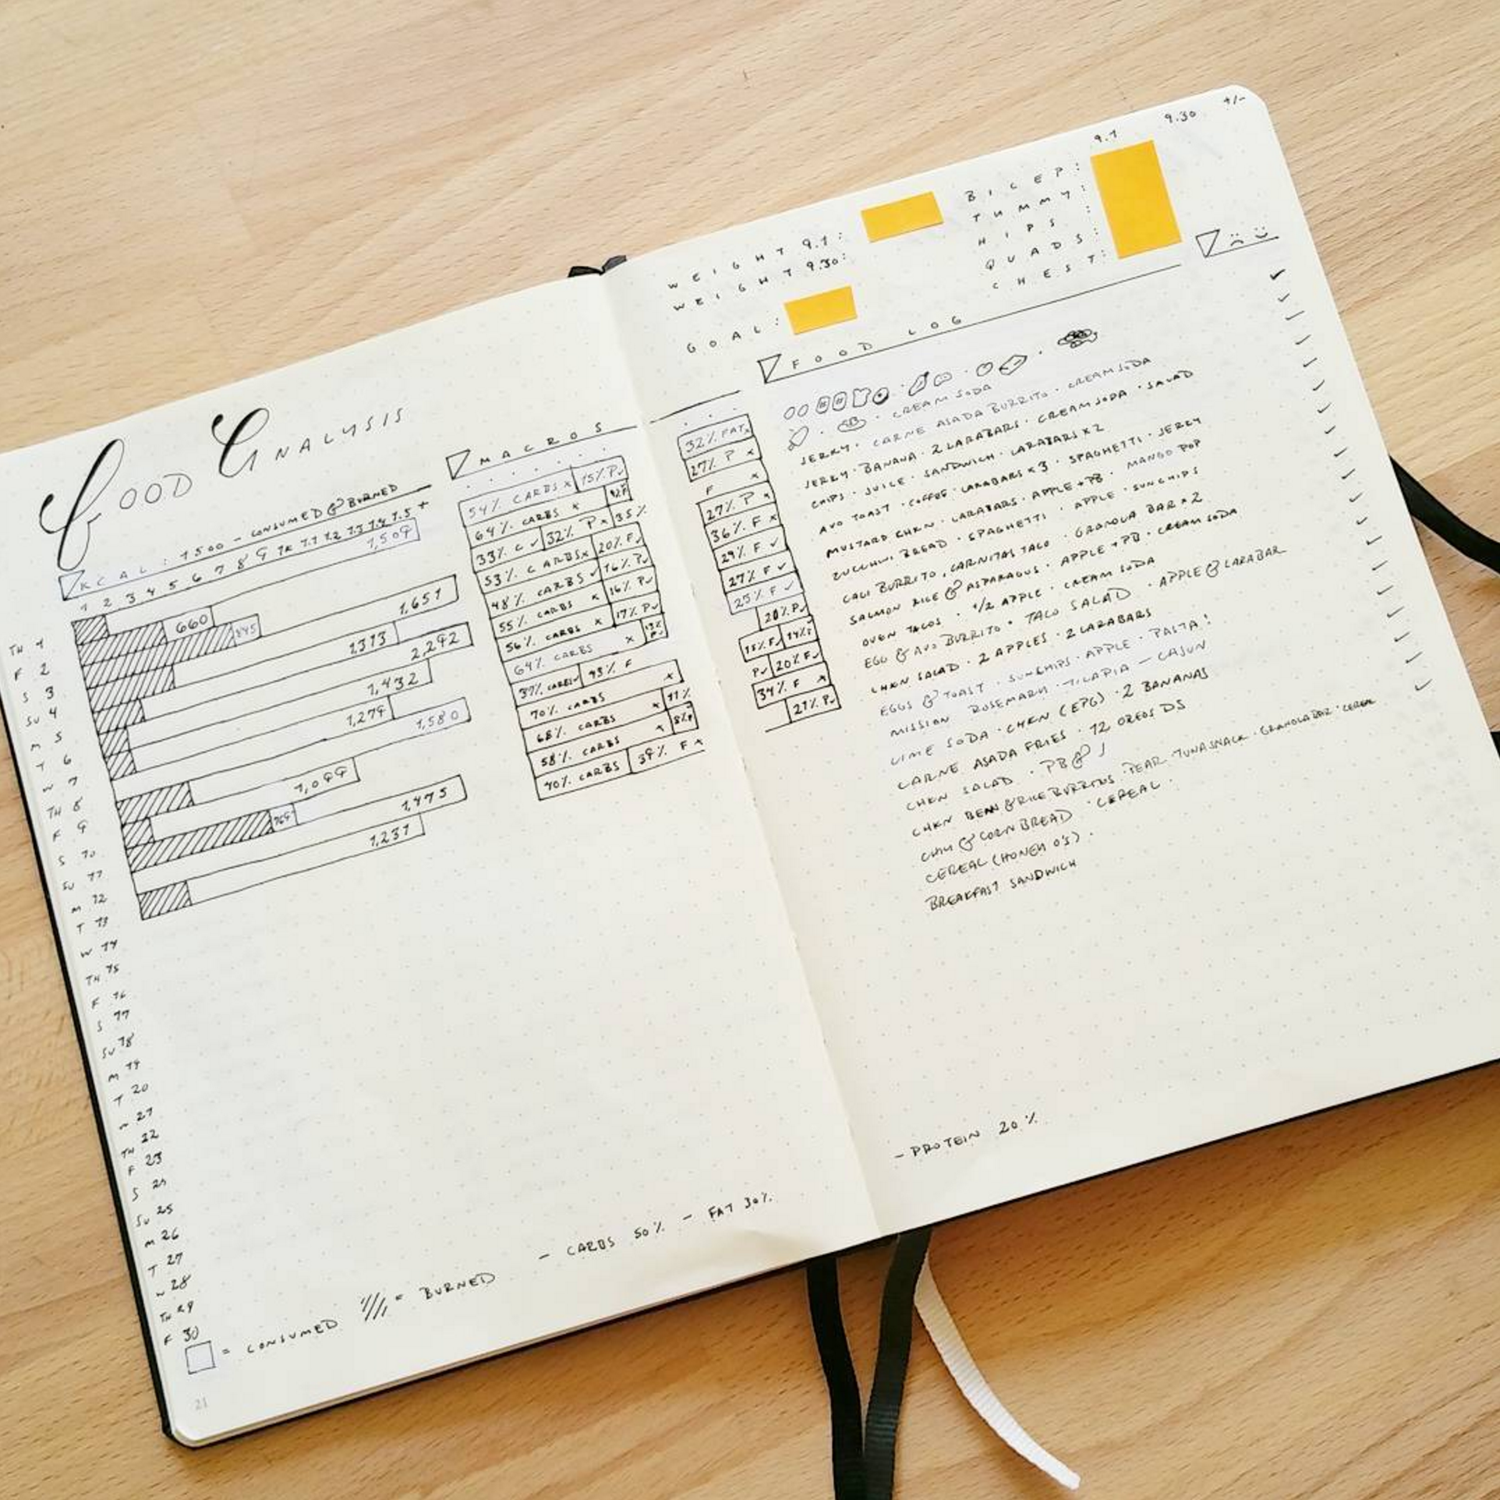 FOOD ANALYSIS
KCAL: 1500 - CONSUMED & BURNED
1 2 3 4 5 6 7 8 9 1K 1.1 1.2 1.3 1.4 1.5 +
1,509
660
845
1,651
1,313
2,292
1,432
1,279
1,580
1,099
769
1,475
1,231
TH 1
F 2
S 3
SU 4
M 5
T 6
W 7
TH 8
F 9
S 10
SU 11
M 12
T 13
W 14
TH 15
F 16
S 17
SU 18
M 19
T 20
W 21
TH 22
F 23
S 24
SU 25
M 26
T 27
W 28
TH 29
F 30
= CONSUMED = BURNED
- CARBS 50% - FAT 30%
21
MACROS
54% CARBS x 15% P✓
64% CARBS x
33% C ✓ 32% P x 35%
53% CARBS x 20% F✓
48% CARBS ✓ 16% P✓
55% CARBS x 16% P✓
56% CARBS x 17% P✓
64% CARBS x
37% CARBS✓ 43% F x
70% CARBS 11%
68% CARBS x
58% CARBS x
40% CARBS 39% F x
WEIGHT 9.1:
WEIGHT 9.30:
GOAL:
9.1 9.30 +/-
BICEP:
TUMMY:
HIPS:
QUADS:
CHEST:
FOOD LOG
32% FAT x
27% P x
F x
27% P x
36% F x
29% F ✓
27% F ✓
25% F ✓
20% P✓
P✓ 20% F✓
34% F x
21% P✓
CREAM SODA
JERKY · CARNE ASADA BURRITO · CREAM SODA
JERKY · BANANA · 2 LARABARS · CREAM SODA · SALAD
CHIPS · JUICE · SANDWICH · LARABARS X 2
AVO TOAST · COFFEE · LARABARS X 3 · SPAGHETTI · JERKY
MUSTARD CHKN · LARABARS · APPLE + PB · MANGO POP
ZUCCHINI BREAD · SPAGHETTI · APPLE · SUNCHIPS
CALI BURRITO, CARNITAS TACO · GRANOLA BAR X 2
SALMON RICE & ASPARAGUS · APPLE + PB · CREAM SODA
OVEN TACOS · 1/2 APPLE · CREAM SODA
EGG & AVO BURRITO · TACO SALAD · APPLE & LARABAR
CHKN SALAD · 2 APPLES · 2 LARABARS
EGGS & TOAST · SUNCHIPS · APPLE · PASTA!
MISSION ROSEMARY · TILAPIA - CAJUN
LIME SODA · CHKN (EPG) · 2 BANANAS
CARNE ASADA FRIES · 12 OREOS DS
CHKN SALAD · PB & J
CHKN BEAN & RICE BURRITOS · PEAR · TUNA SNACK · GRANOLA BAR · CEREAL
CHILI & CORN BREAD · CEREAL
CEREAL (HONEY O'S) ·
BREAKFAST SANDWICH
- PROTEIN 20%